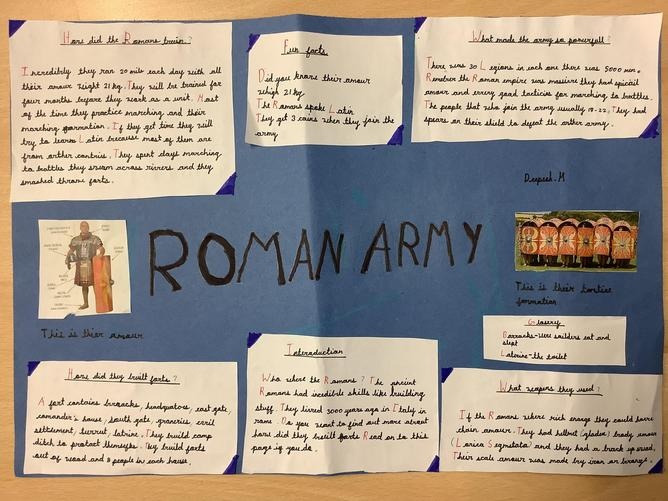 How did the Romans train?
Incredibly they ran 20 mile each day with all
their amour weight 21 kg. They will be trained for
four months before they work as a unit. Most
of the time they practice marching and their
marching formation. If they get time they will
try to learn Latin because most of them are
from orther contries. They spent days marching
to battles they swam across rivers and they
smashed throw forts.
Fun facts
Did you know their amour
weigh 21 kg
The Romans spoke Latin
They get 3 coins when they join the
army
What made the army so powerfull?
There was 30 Legions in each one there was 5000 men.
Remeber the Roman empire was massive they had
amour and errey good tacticas for marching to battles.
The people that join the army usually 18-22. They had
spears on their shield to defeat the orther army.
Deepesh.M
ROMAN ARMY
This is thier amour
This is their tortise
formation
Glosery
Barracks-were soilders eat and
slept
Laterine-the toilet
How did they built forts?
A fort contains barracks, headquatores, east gate,
comander's house, south gate, graneries, civil
settlement, turret, latrine. They build camp
ditch to protact themselfs. They build forts
out of wood and 8 people in each house.
Interoduction
Who where the Romans? The ancient
Romans had incedible skills like building
stuff. They lived 3000 years ago in Italy in
rome. Do you want to find out more about
how did they build forts Read on to this
page if you do.
What weapens they used?
If the Romans where rich enoge they could have
chain amour. They had helmet (galea) body amour
(Lorica Segmatata) and they had a
Their scale amour was made by iron or bronze.